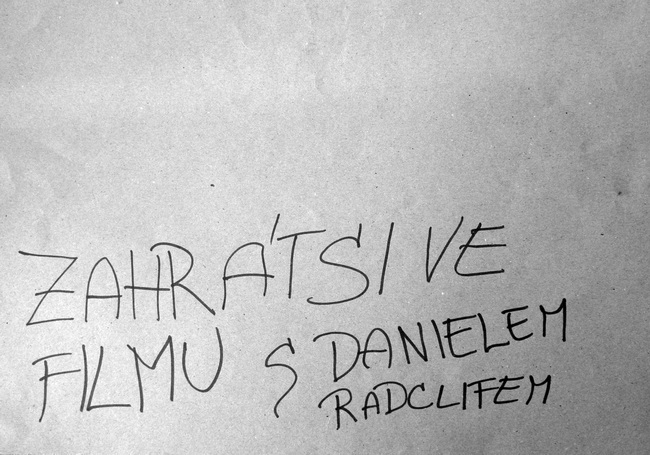 ZAHRÁT SI VE
FILMU S DANIELEM
RADCLIFEM